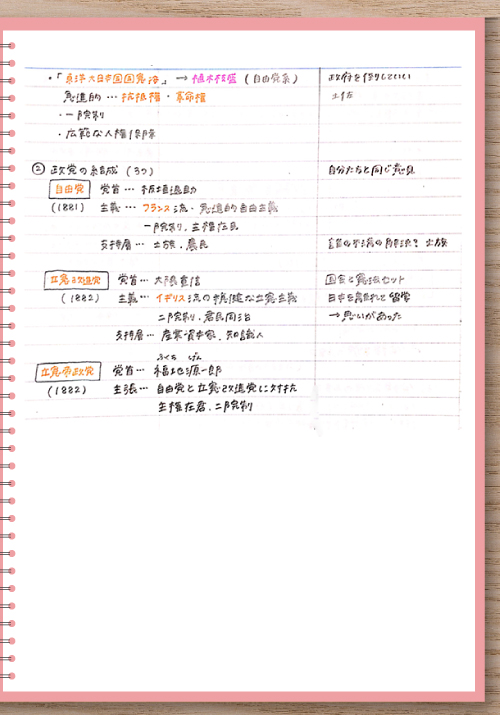 ・「東洋大日本国国憲按」 → 植木枝盛 (自由党系)
政府を倒してもいい
急進的 … 抵抗権・革命権
・一院制
・広範な人権保障
② 政党の結成 (3つ)
自分たちと同じ意見
自由党 党首 … 板垣退助
(1881) 主義 … フランス流・急進的自由主義
一院制、主権在民
支持層 … 士族、農民
立憲改進党 党首 … 大隈重信
国会と憲法セット
(1882) 主義 … イギリス流の穏健な立憲主義
日本を離れて留学
二院制、君民同治
→ 思いがあった
支持層 … 産業資本家、知識人
ふくち げん
立憲帝政党 党首 … 福地源一郎
(1882) 主張 … 自由党と立憲改進党に対抗
主権在君、二院制